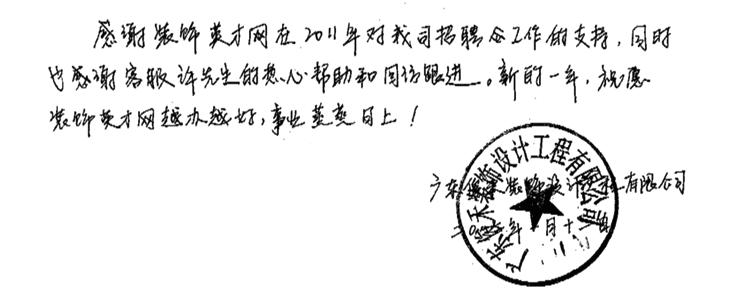 感谢装饰英才网在2011年对我司招聘工作的支持，同时
也感谢客服许先生的热心帮助和回访跟进。新的一年，祝愿
装饰英才网越办越好，事业蒸蒸日上！
装饰设计工程有限公司
有限公司